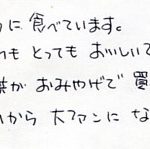 に 食べています。
も とっても おいしいで
が おみやげで 買
から 大ファンに な